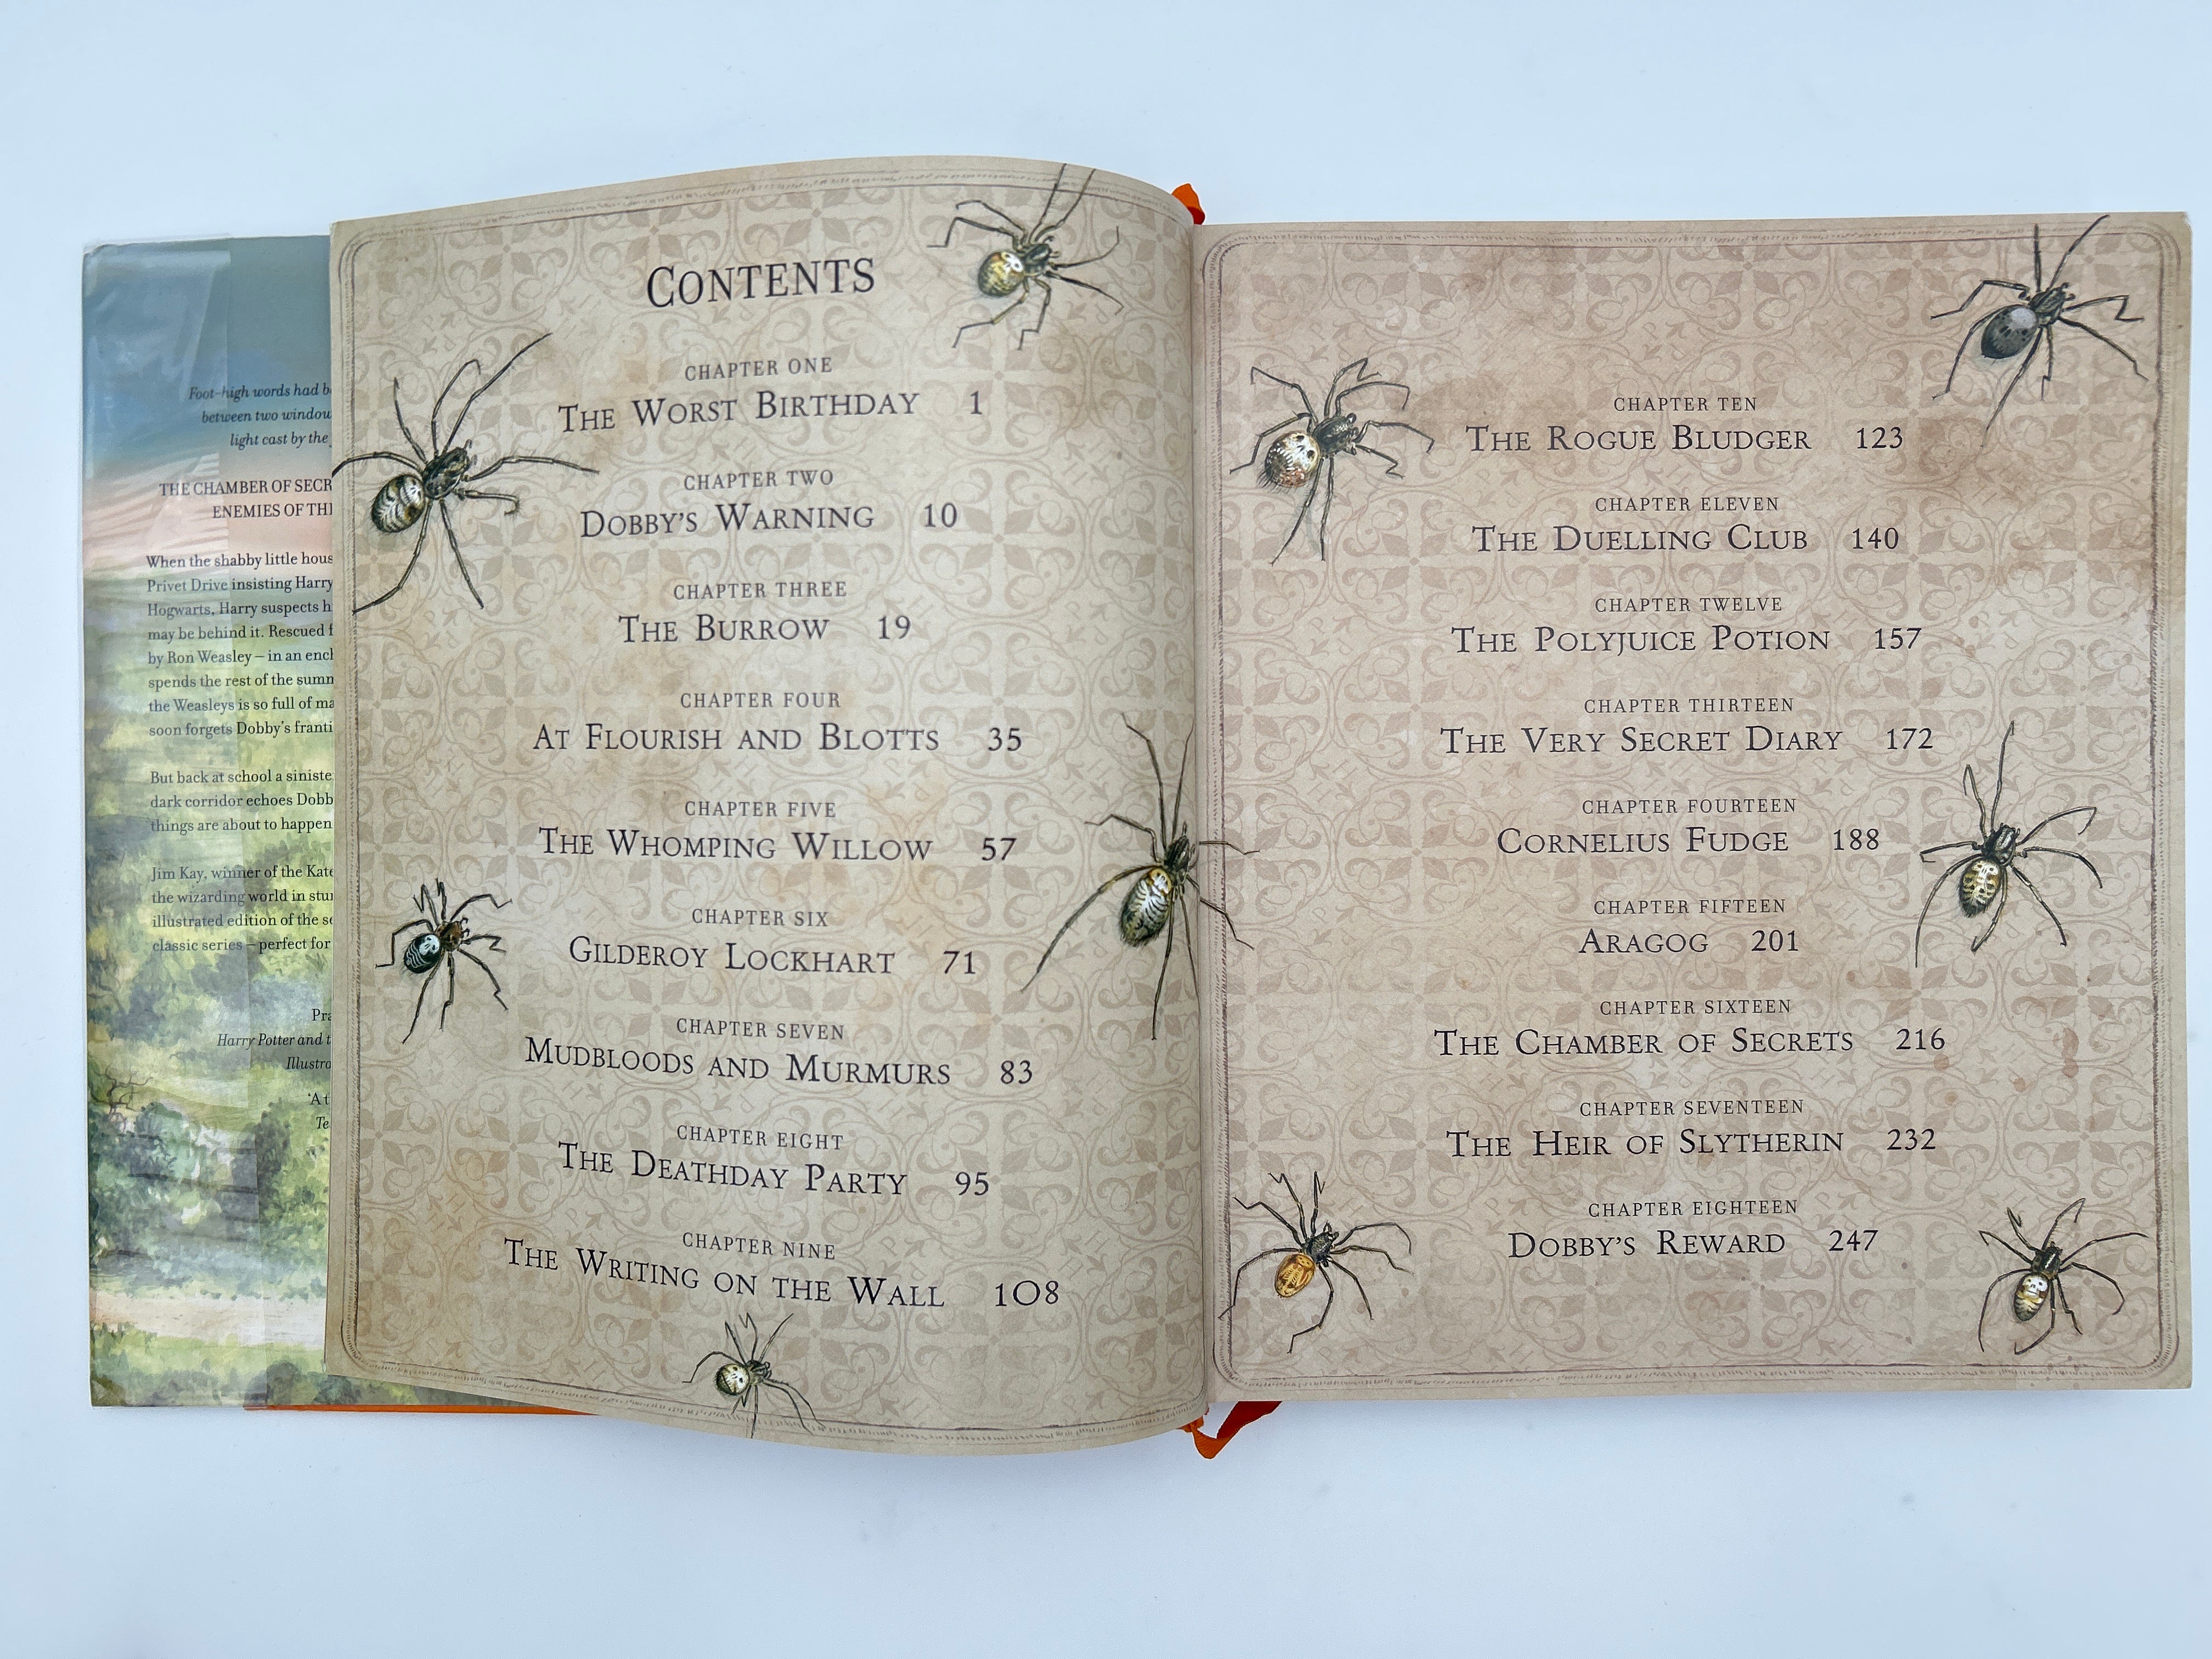 Foot-high words had
between two
light cast by the
THE CHAMBER OF
ENEMIES OF
When the shabby little
Privet Drive insisting Harry
Hogwarts, Harry suspects
may be behind it. Rescued
by Ron Weasley – in an
spends the rest of the
the Weasleys is so full of
soon forgets Dobby's
But back at school a
dark corridor echoes
things are about to happen
Jim Kay, winner of the
the wizarding world in
illustrated edition of the
classic series – perfect for
Harry Potter and
CONTENTS
CHAPTER ONE
THE WORST BIRTHDAY 1
CHAPTER TWO
DOBBY'S WARNING 10
CHAPTER THREE
THE BURROW 19
CHAPTER FOUR
AT FLOURISH AND BLOTTS 35
CHAPTER FIVE
THE WHOMPING WILLOW 57
CHAPTER SIX
GILDEROY LOCKHART 71
CHAPTER SEVEN
MUDBLOODS AND MURMURS 83
CHAPTER EIGHT
THE DEATHDAY PARTY 95
CHAPTER NINE
THE WRITING ON THE WALL 108
CHAPTER TEN
THE ROGUE BLUDGER 123
CHAPTER ELEVEN
THE DUELLING CLUB 140
CHAPTER TWELVE
THE POLYJUICE POTION 157
CHAPTER THIRTEEN
THE VERY SECRET DIARY 172
CHAPTER FOURTEEN
CORNELIUS FUDGE 188
CHAPTER FIFTEEN
ARAGOG 201
CHAPTER SIXTEEN
THE CHAMBER OF SECRETS 216
CHAPTER SEVENTEEN
THE HEIR OF SLYTHERIN 232
CHAPTER EIGHTEEN
DOBBY'S REWARD 247